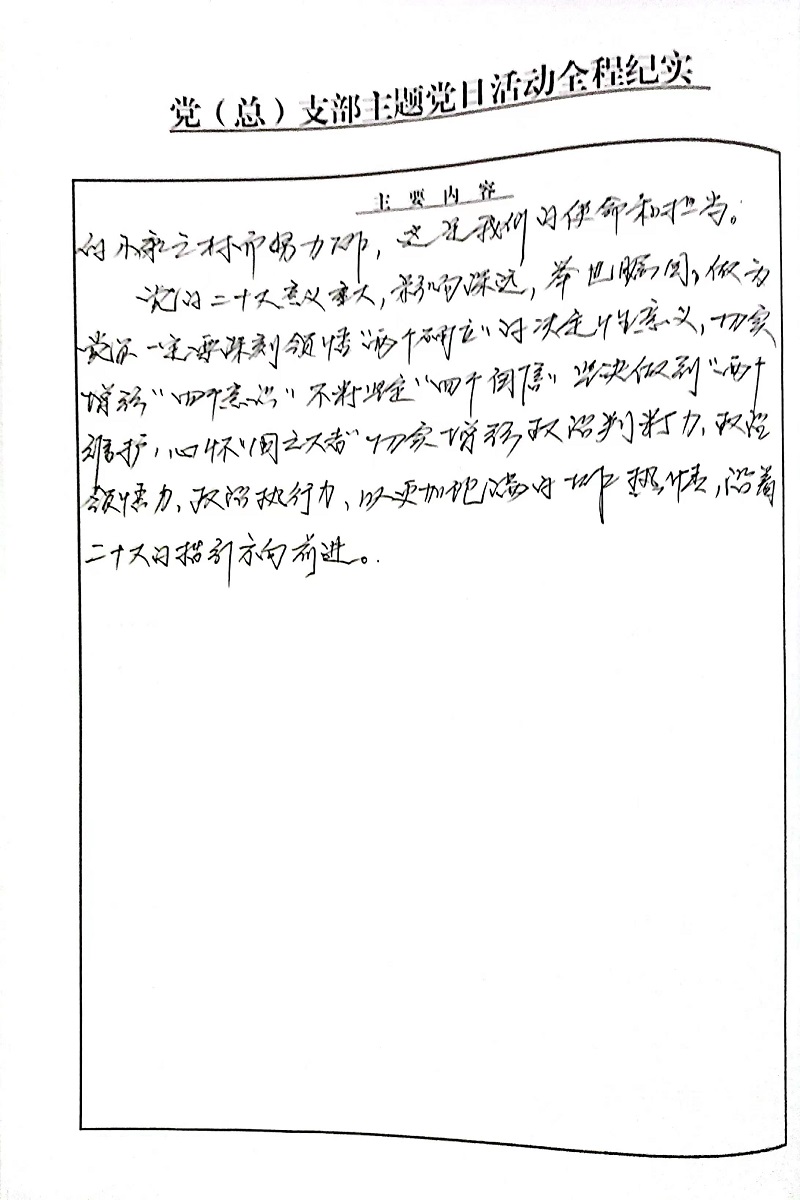 党（总）支部主题党日活动全程纪实
主要内容
的不承之林而努力工作，这是我们的使命和担当。
党的二十大意义重大，影响深远，举世瞩目。做为
党员一定要深刻领悟“两个确立”的决定性意义，切实
增强“四个意识”不断坚定“四个自信”坚决做到“两个
维护，心怀“国之大者”切实增强政治判断力，政治
领悟力，政治执行力，以更加饱满的工作热情，沿着
二十大的指引方向前进。